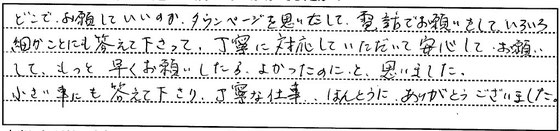 どこで、お願いしていいのか、タウンページを思いだして、電話でお願いをして、いろいろ
細かことにも答えて下さって、丁寧に対応していただいて安心して、お願い
して、もっと早くお願いしたら、よかったのに、と、思いました。
小さい事にも答えて下さり、丁寧な仕事、ほんとうに ありがとうございました。